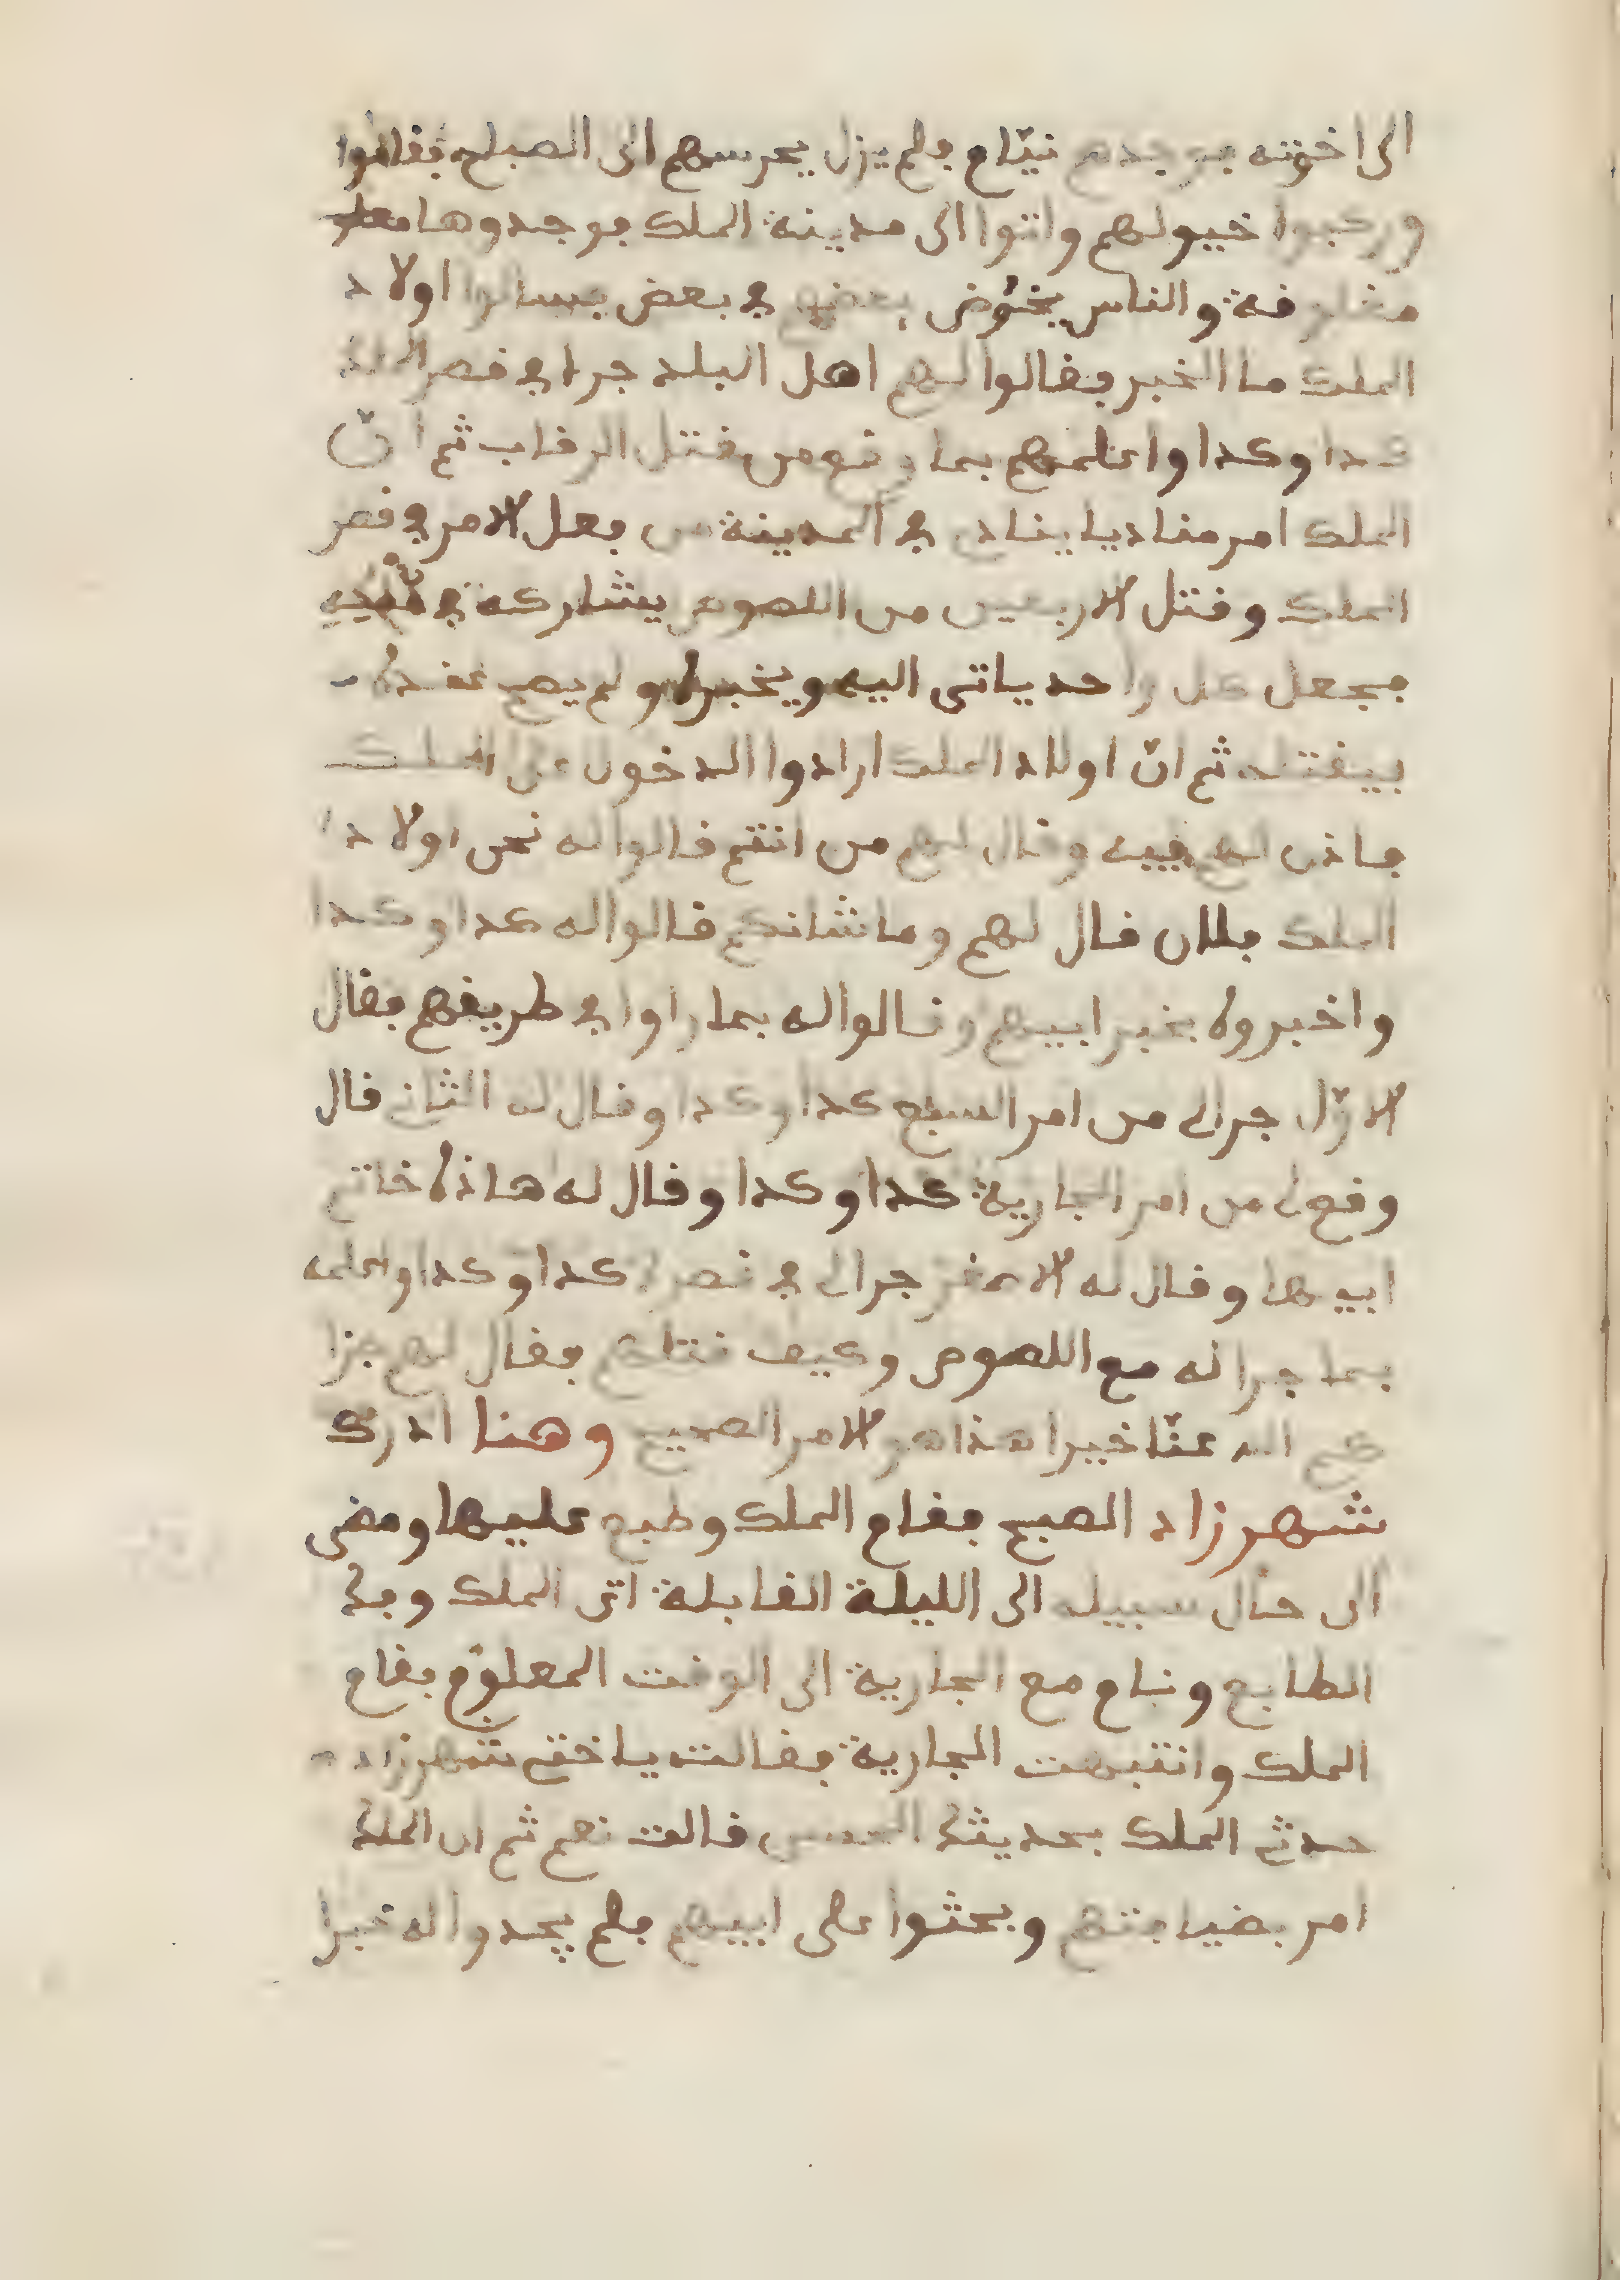 الى اخوته فوجدهم نيّام فلم يزل يحرسهم الى الصباح فقاموا
وركبوا خيولهم واتوا الى مدينة الملك فوجدوها
مغلوقة والناس يخوض بعضهم في بعض فسالوا اولاد
الملك ما الخبر فقالوا لهم اهل البلد جرا في قصر الملك
كدا وكدا واعلمهم بما وقع من قتل الرقاب ثم انّ
الملك امر مناديا ينادي في المدينة من فعل الامر في قصر
الملك وقتل الاربعين من اللصوص يشاركه في
فجعل كل واحد ياتي اليه ويخبره ولم يصح عنده
فيقتله ثم انّ اولاد الملك ارادوا الدخول على الملك
فاذن لهم فيه وقال لهم من انتم قالوا له نحن اولاد
الملك فلان قال لهم وما شانكم قالوا له كدا وكدا
واخبروه بخبر ابيهم وقالوا له بما راوا في طريقهم فقال
الاوّل جرالي من امر السبع كدا وكدا وقال له الثاني قال
وقع لي من امر الجارية كدا وكدا وقال له هاذه خاتم
ابيها وقال له الاصغر جرالي في قصرك كدا وكدا واعلمه
بما جرا له مع اللصوص وكيف قتلهم فقال لهم جزا
كم الله عنّا خيرا هذا هو الامر الصحيح وهنا ادرك
شهرزاد الصبح فقام الملك وطبع عليها ومضى
الى حال سبيله الى الليلة القابلة اتى الملك وفك
الطابع ونام مع الجارية الى الوقت المعلوم فقام
الملك وانتبهت الجارية فقالت ياختي شهرزاد
حدثي الملك بحديثك الحسن قالت نعم ثم ان الملك
امر بضيافتهم وبحثوا على ابيهم فلم يجدوا له خبرا